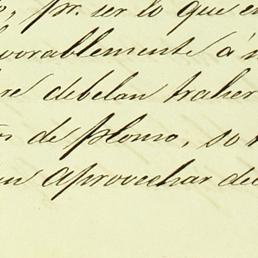 pr. ser lo que en
vorablemente á
debelan traher
de plomo, so
aprovechar de